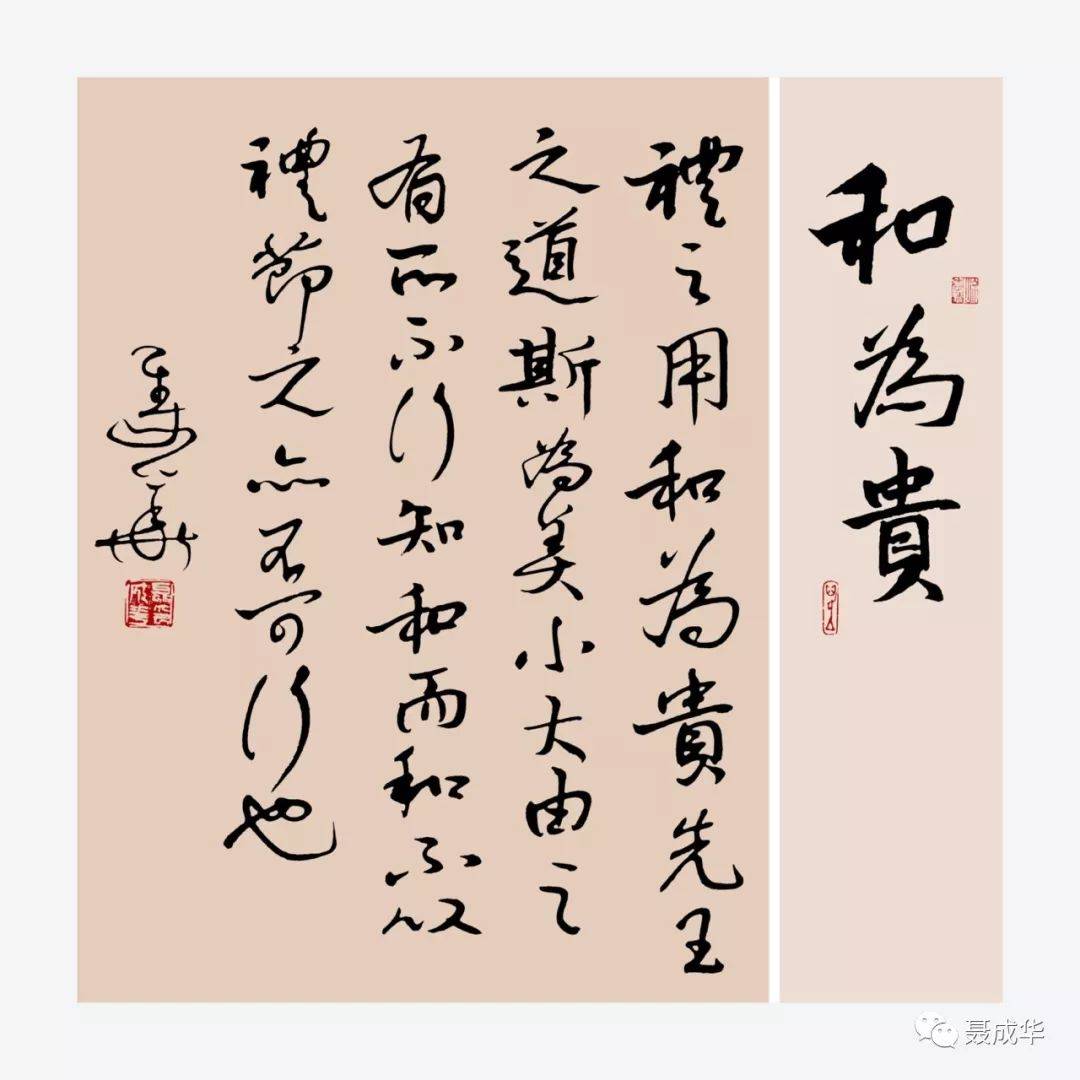 和為貴
禮之用和為貴先王
之道斯為美小大由之
有所不行知和而和不以
禮節之亦不可行也
聂成华